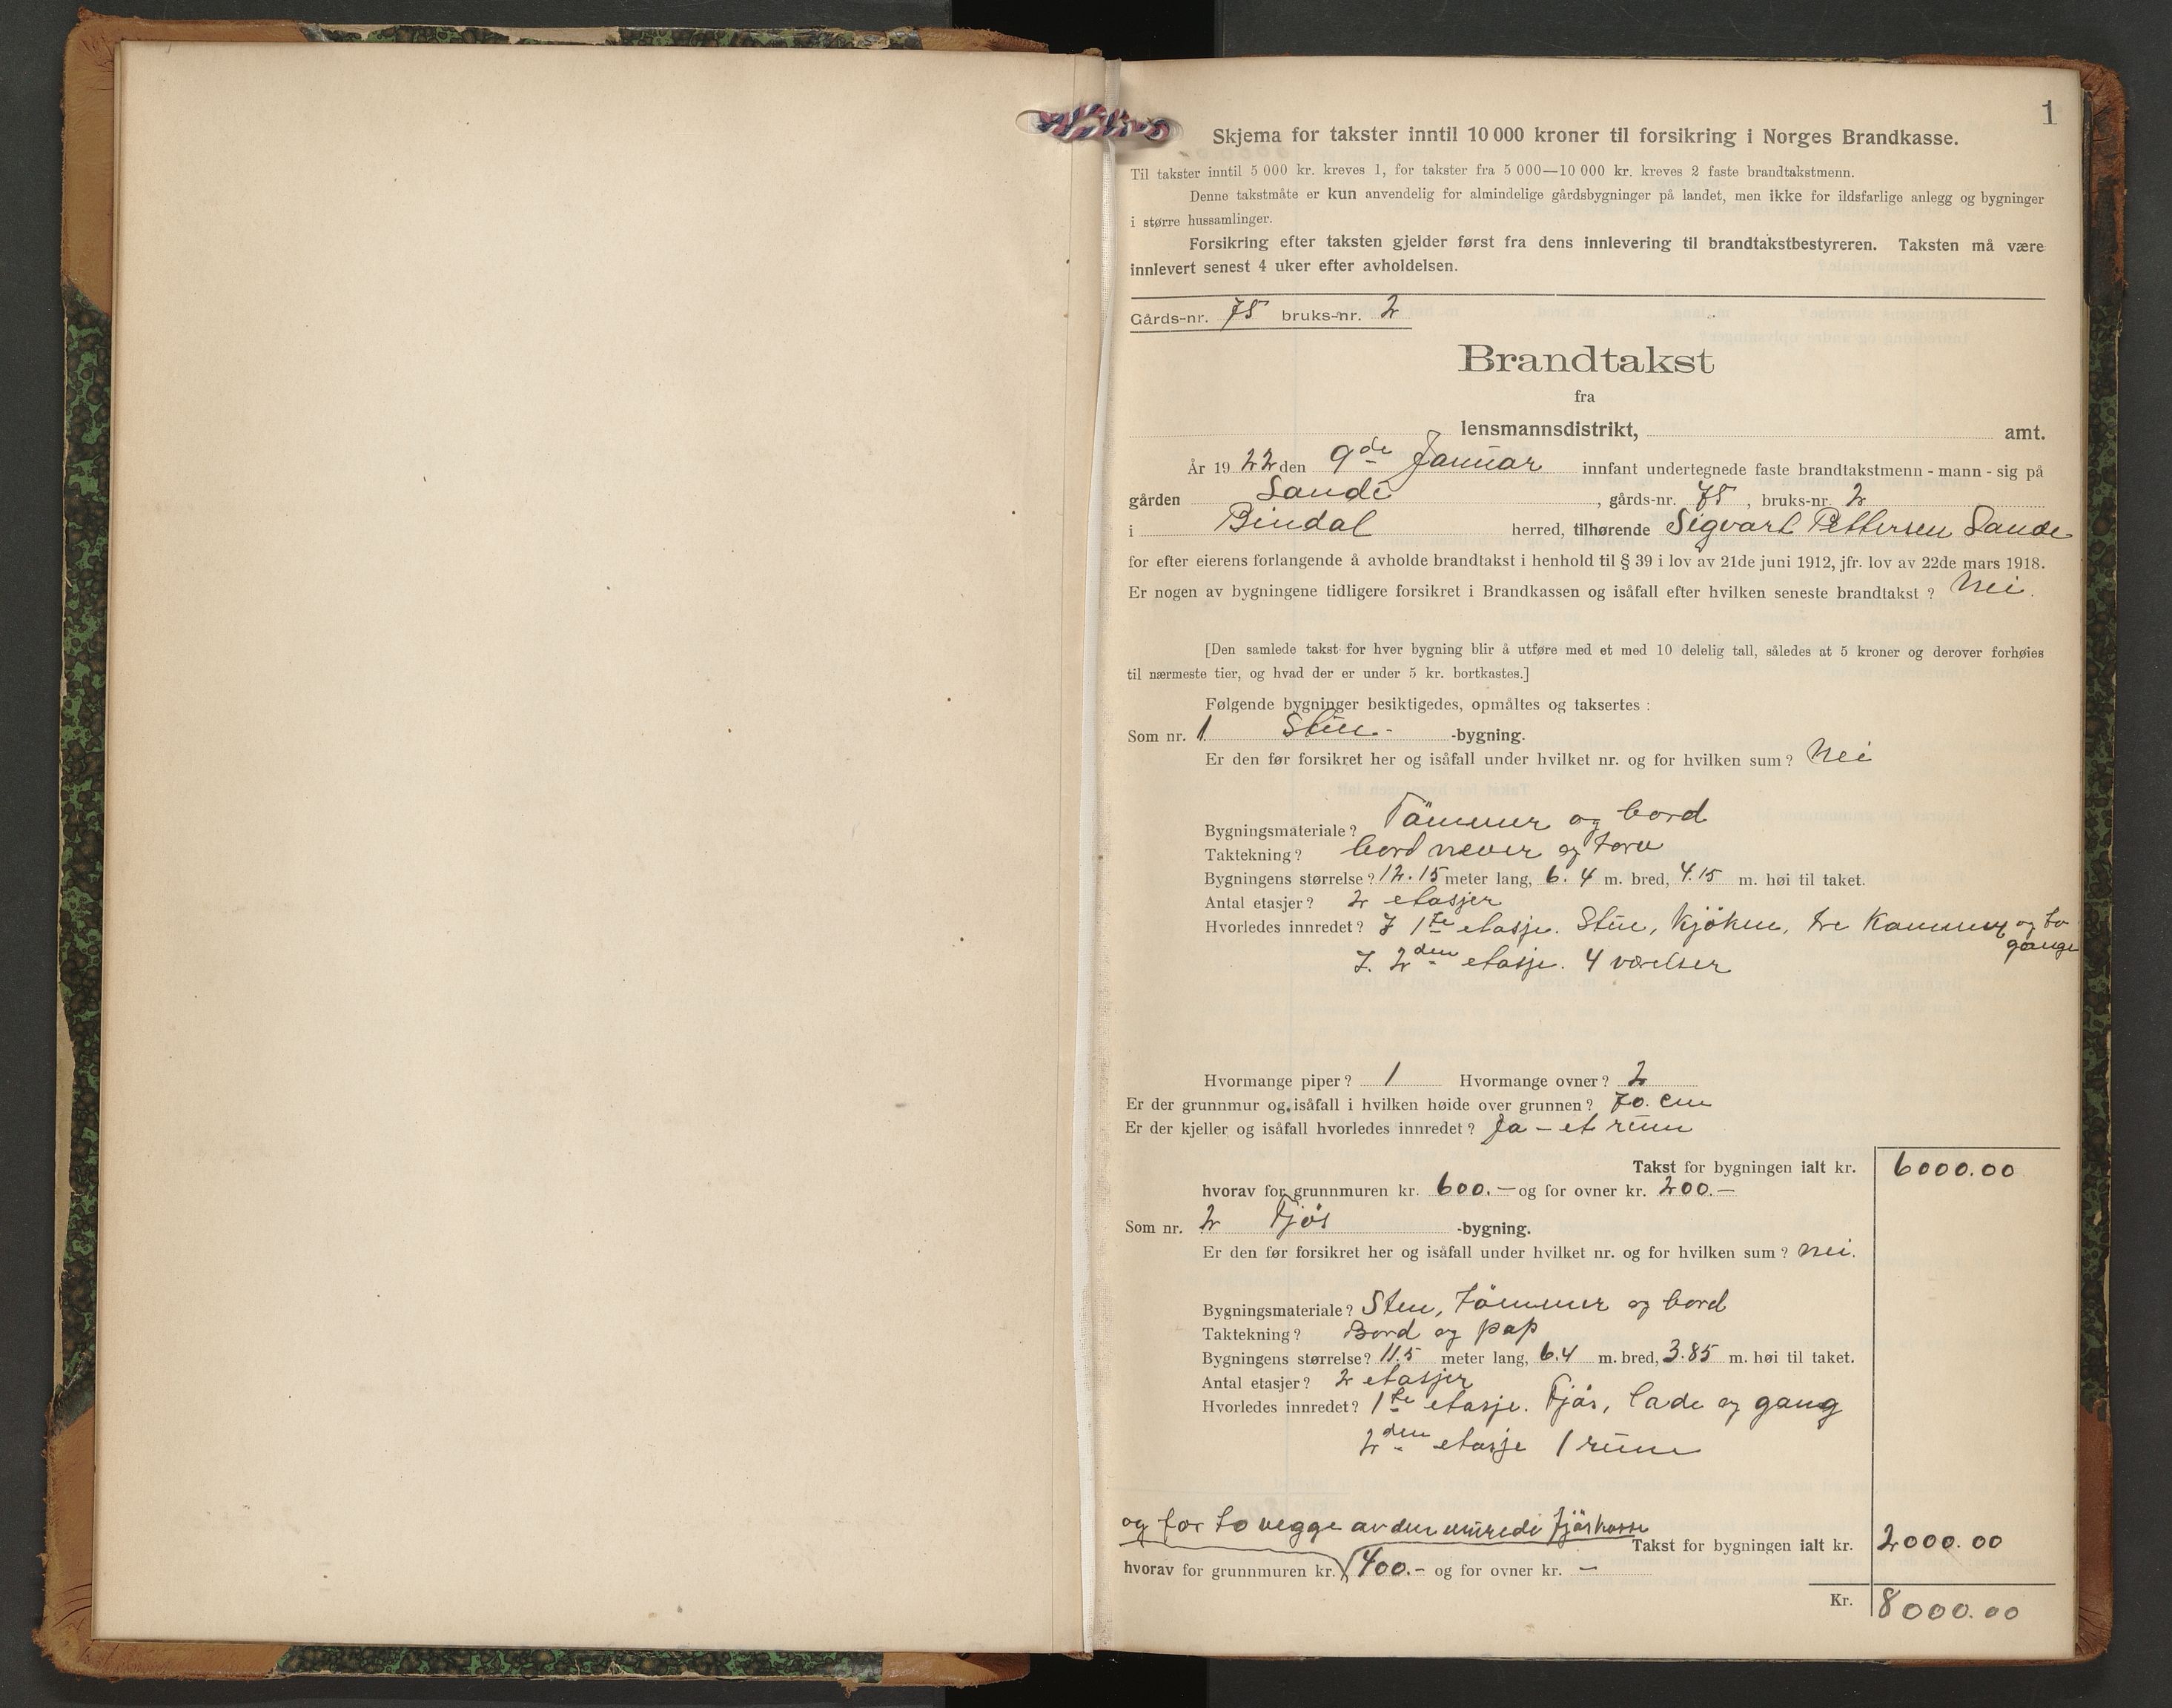 1
Skjema for takster inntil 10 000 kroner til forsikring i Norges Brandkasse.
Til takster inntil 5 000 kr. kreves 1, for takster fra 5 000—10 000 kr. kreves 2 faste brandtakstmenn.
Denne takstmåte er kun anvendelig for almindelige gårdsbygninger på landet, men ikke for ildsfarlige anlegg og bygninger
i større hussamlinger.
Forsikring efter taksten gjelder først fra dens innlevering til brandtakstbestyreren. Taksten må være
innlevert senest 4 uker efter avholdelsen.
Gårds-nr. 75 bruks-nr. 2
Brandtakst
fra
lensmannsdistrikt, amt.
År 19 22 den 9de Januar innfant undertegnede faste brandtakstmenn - mann - sig på
gården Sande, gårds-nr. 75, bruks-nr. 2
i Bindal herred, tilhørende Sigvart Pettersen Sande
for efter eierens forlangende å avholde brandtakst i henhold til § 39 i lov av 21de juni 1912, jfr. lov av 22de mars 1918.
Er nogen av bygningene tidligere forsikret i Brandkassen og isåfall efter hvilken seneste brandtakst ? Nei.
[Den samlede takst for hver bygning blir å utføre med et med 10 delelig tall, således at 5 kroner og derover forhøies
til nærmeste tier, og hvad der er under 5 kr. bortkastes.]
Følgende bygninger besiktigedes, opmåltes og taksertes :
Som nr. 1 Stue- -bygning.
Er den før forsikret her og isåfall under hvilket nr. og for hvilken sum ? Nei
Bygningsmateriale ? Tömmer og bord
Taktekning ? bord never og torv
Bygningens størrelse ? 12.15 meter lang, 6.4 m. bred, 4.15 m. høi til taket.
Antal etasjer ? 2 etasjer
Hvorledes innredet ? I 1ste etasje. Stue, kjöken, tre kammer og to
gange
I. 2den etasje. 4 værelser
Hvormange piper ? 1 Hvormange ovner ? 2
Er der grunnmur og isåfall i hvilken høide over grunnen ? 70. cm
Er der kjeller og isåfall hvorledes innredet ? Ja – et rum
Takst for bygningen ialt kr. 6000.00
hvorav for grunnmuren kr. 600.— og for ovner kr. 200.—
Som nr. 2 Fjös -bygning.
Er den før forsikret her og isåfall under hvilket nr. og for hvilken sum ? nei.
Bygningsmateriale ? Sten, tömmer og bord
Taktekning ? Bord og pap
Bygningens størrelse ? 11.5 meter lang, 6.4 m. bred, 3.85 m. høi til taket.
Antal etasjer ? 2 etasjer
Hvorledes innredet ? 1ste etasje. Fjös, lade og gang
2den etasje 1 rum
og for to vegge av den murede fjöskasse
Takst for bygningen ialt kr. 2000.00
hvorav for grunnmuren kr. 400.- og for ovner kr. —
Kr. 8000.00